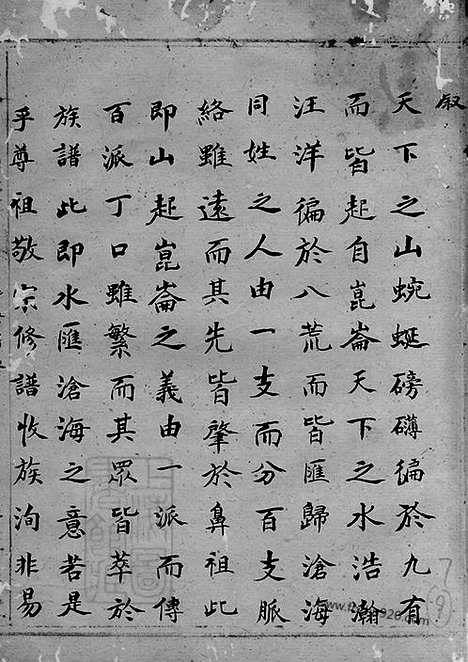 叙
天下之山蜿蜒磅礴徧於九有
而皆起自崑崙天下之水浩瀚
汪洋徧於八荒而皆匯歸滄海
同姓之人由一支而分百支脈
絡雖遠而其先皆肇於鼻祖此
即山起崑崙之義由一派而傳
百派丁口雖繁而其眾皆萃於
族譜此即水匯滄海之意若是
乎尊祖敬宗修譜收族洵非易